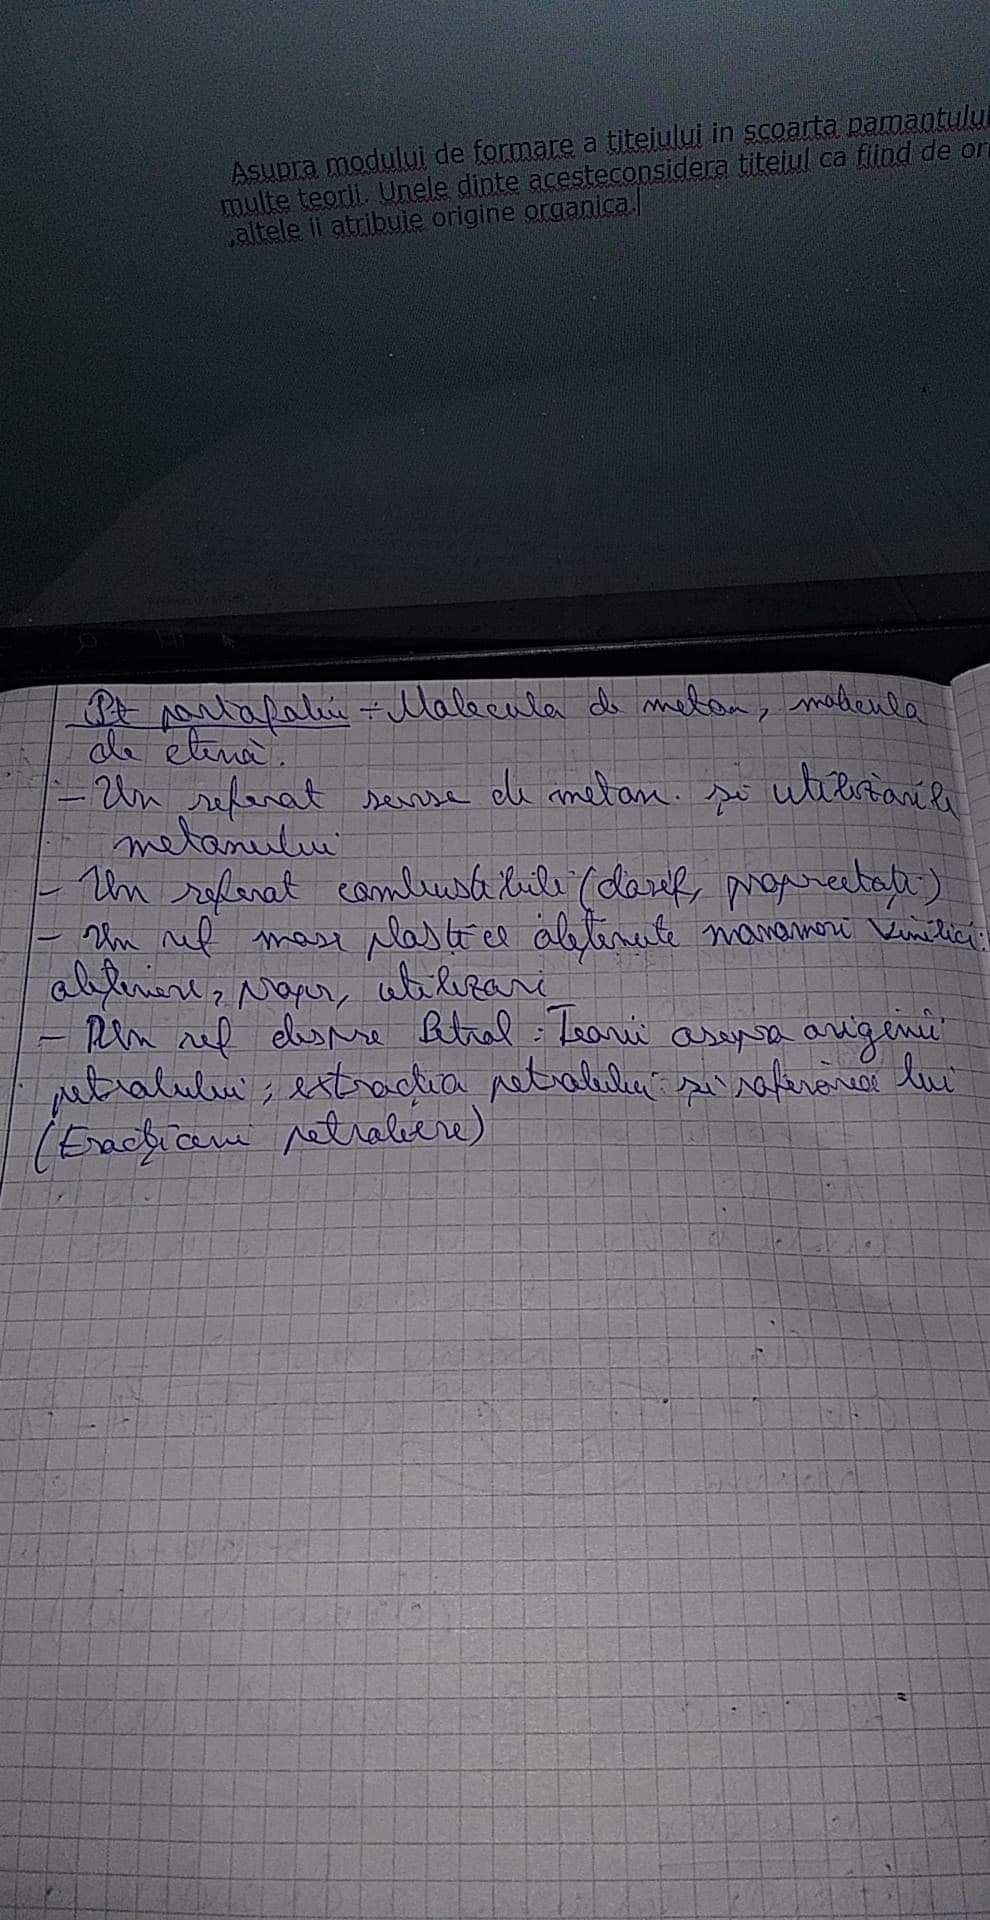 Asupra modului de formare a titeiului in scoarta pamantului
multe teorii. Unele dinte acesteconsidera titeiul ca fiind de or
,altele ii atribuie origine organica.
Pt portofoliu - Molecula de metan, molecula
de etenă.
- Un referat surse de metan. și utilizările
metanului
- Un referat combustibili (clasif, proprietati)
- Un ref mase plastice obtinute monomeri vinilici:
obtinere, propr, utilizari
- Un ref despre Petrol: Teorii asupra originii
petrolului; extractia petrolului și rafinarea lui
(Fractiuni petroliere)